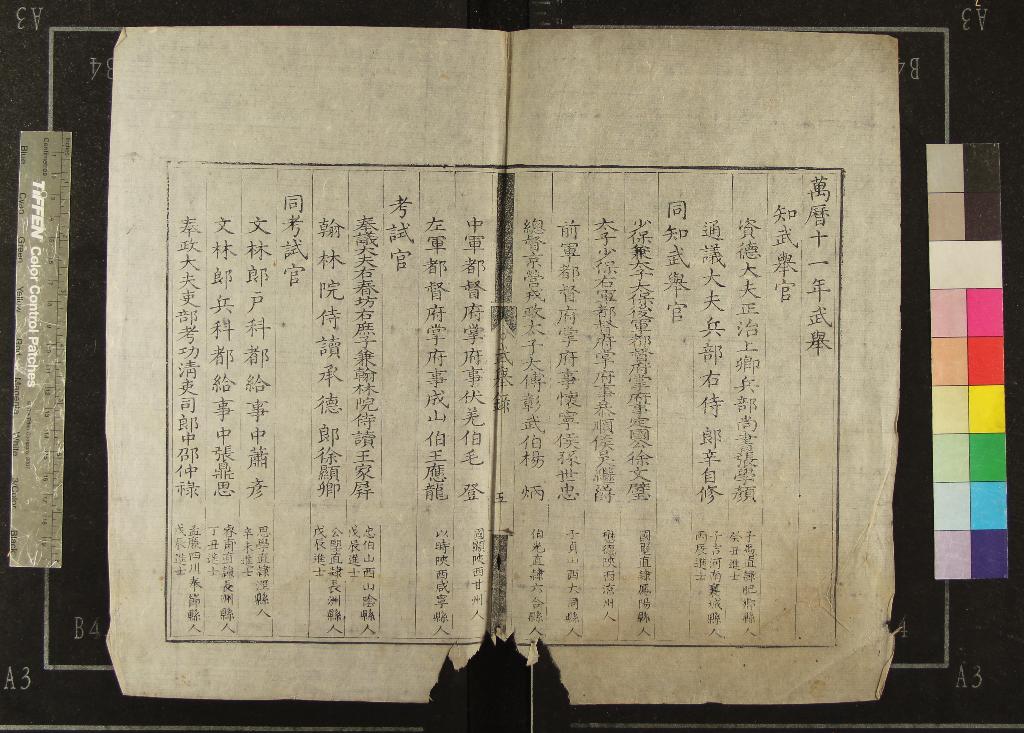 萬曆十一年武舉
知武舉官
資德大夫正治上卿兵部尚書張學顏 子愚直隸肥鄉縣人 癸丑進士
通議大夫兵部右侍郎辛自修 子吉河南襄城縣人 丙辰進士
同知武舉官
少保兼太子太保後軍都督府掌府事定國公徐文璧 國璽直隸鳳陽縣人
太子少保右軍都督府掌府事恭順侯吳繼爵 陝西涼州人
前軍都督府掌府事懷寧侯孫世忠 子貞山西大同縣人
總督京營戎政太子太傅彰武伯楊炳 伯光直隸六合縣人
武舉錄
五
中軍都督府掌府事伏羌伯毛登 國顯陝西甘州人
左軍都督府掌府事成山伯王應龍 以時陝西咸寧縣人
考試官
奉議大夫右春坊右庶子兼翰林院侍讀王家屏 忠伯山西山陰縣人 戊辰進士
翰林院侍讀承德郎徐顯卿 公望直隸長洲縣人 戊辰進士
同考試官
文林郎戶科都給事中蕭彥 思學直隸涇縣人 辛未進士
文林郎兵科都給事中張鼎思 睿甫直隸長洲縣人 丁丑進士
奉政大夫吏部考功清吏司郎中邵仲祿 四川奉節縣人 戊辰進士
TIFFEN Color Control Patches
A3
A3
B4
B4
B4
4
A3
A3